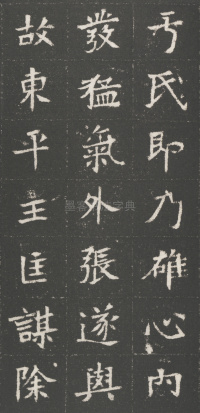 于氏即乃雄心内
發猛氣外張遂與
故東平王匡謀除